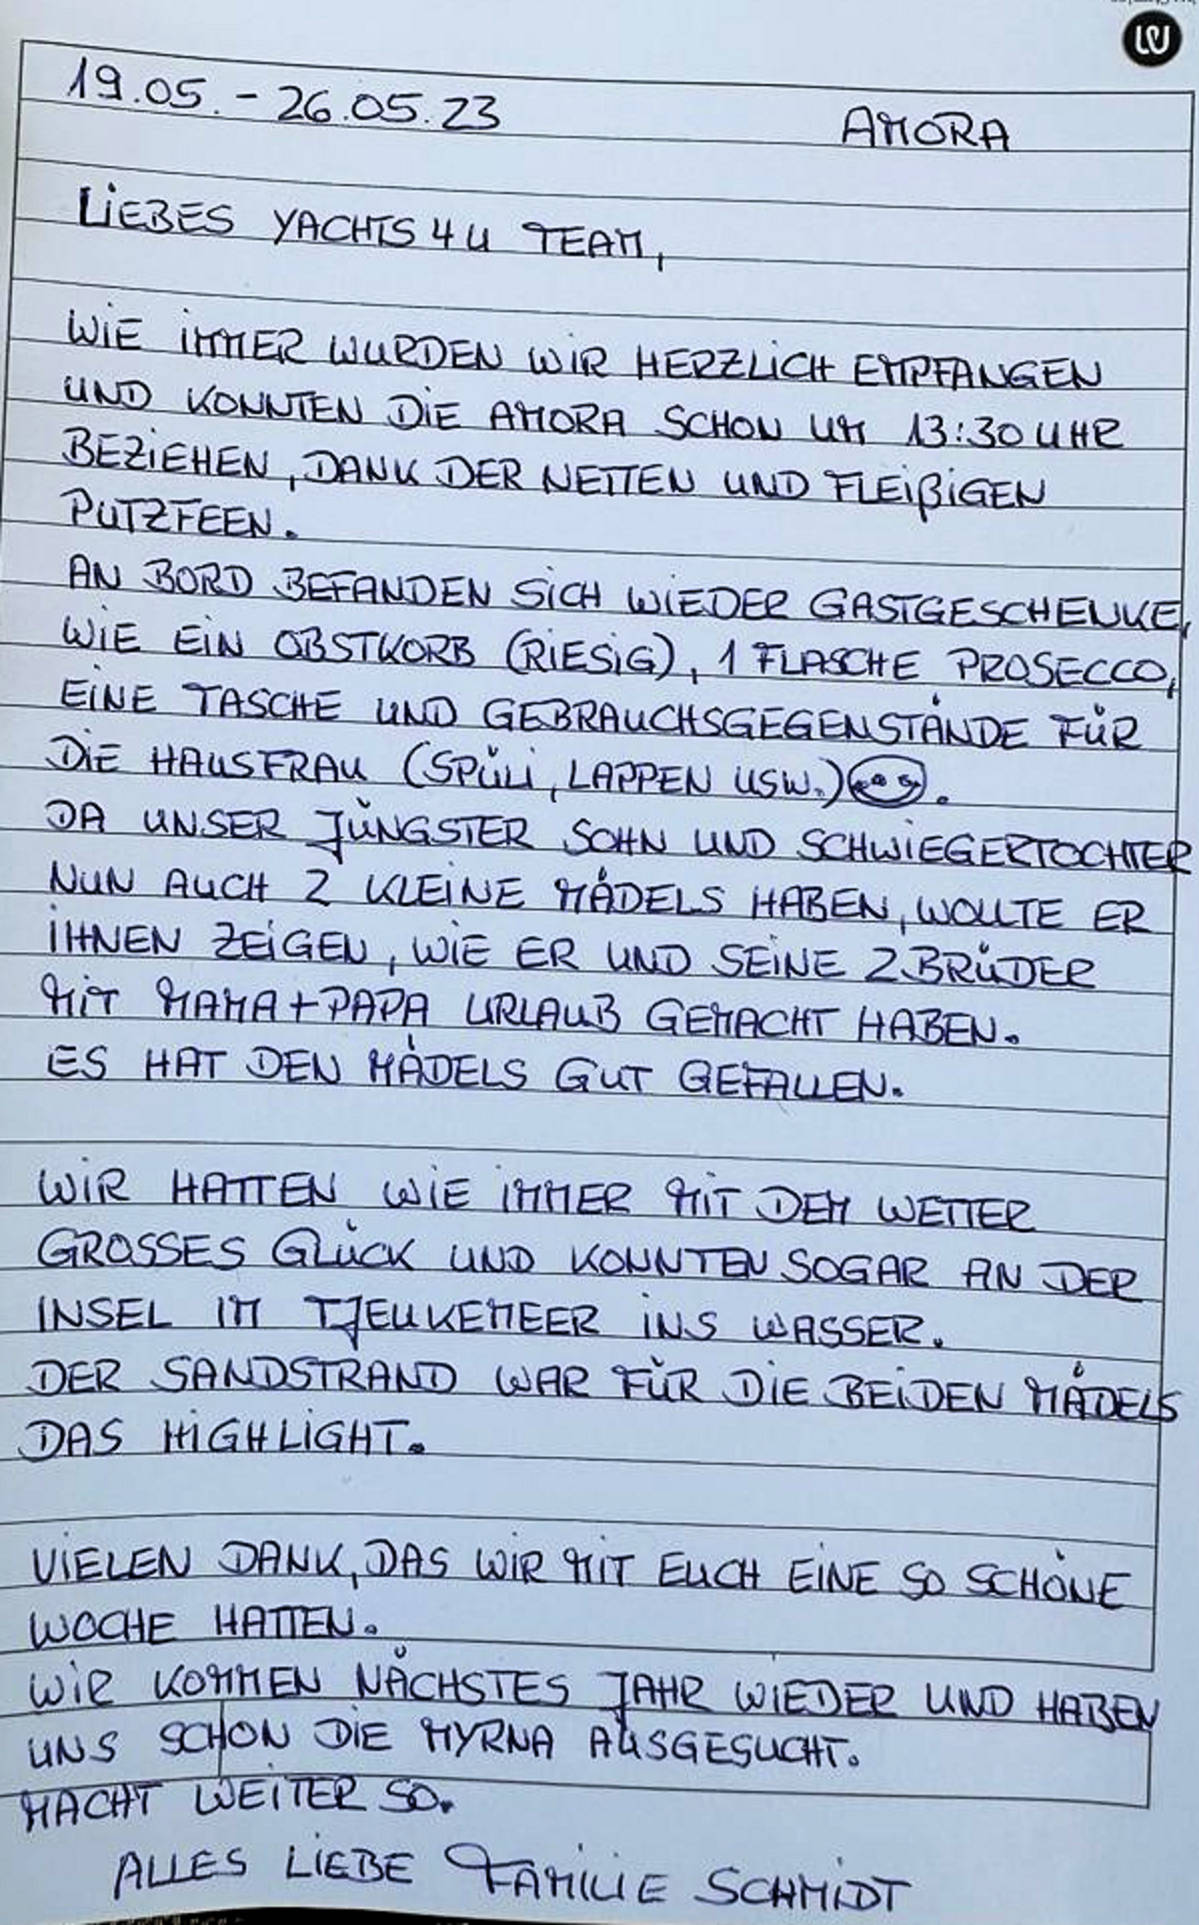 19.05. - 26.05.23 AMORA
LIEBES YACHTS 4 U TEAM,
WIE IMMER WURDEN WIR HERZLICH EMPFANGEN
UND KONNTEN DIE AMORA SCHON UM 13:30 UHR
BEZIEHEN, DANK DER NETTEN UND FLEIßIGEN
PUTZFEEN.
AN BORD BEFANDEN SICH WIEDER GASTGESCHENKE,
WIE EIN OBSTKORB (RIESIG), 1 FLASCHE PROSECCO,
EINE TASCHE UND GEBRAUCHSGEGENSTÄNDE FÜR
DIE HAUSFRAU (SPÜLI, LAPPEN USW.) 😊.
DA UNSER JÜNGSTER SOHN UND SCHWIEGERTOCHTER
NUN AUCH 2 KLEINE MÄDELS HABEN, WOLLTE ER
IHNEN ZEIGEN, WIE ER UND SEINE 2 BRÜDER
MIT MAMA + PAPA URLAUB GEMACHT HABEN.
ES HAT DEN MÄDELS GUT GEFALLEN.
WIR HATTEN WIE IMMER MIT DEM WETTER
GROSSES GLÜCK UND KONNTEN SOGAR AN DER
INSEL IM TJEUKEMEER INS WASSER.
DER SANDSTRAND WAR FÜR DIE BEIDEN MÄDELS
DAS HIGHLIGHT.
VIELEN DANK, DAS WIR MIT EUCH EINE SO SCHÖNE
WOCHE HATTEN.
WIR KOMMEN NÄCHSTES JAHR WIEDER UND HABEN
UNS SCHON DIE MYRNA AUSGESUCHT.
MACHT WEITER SO.
ALLES LIEBE FAMILIE SCHMIDT